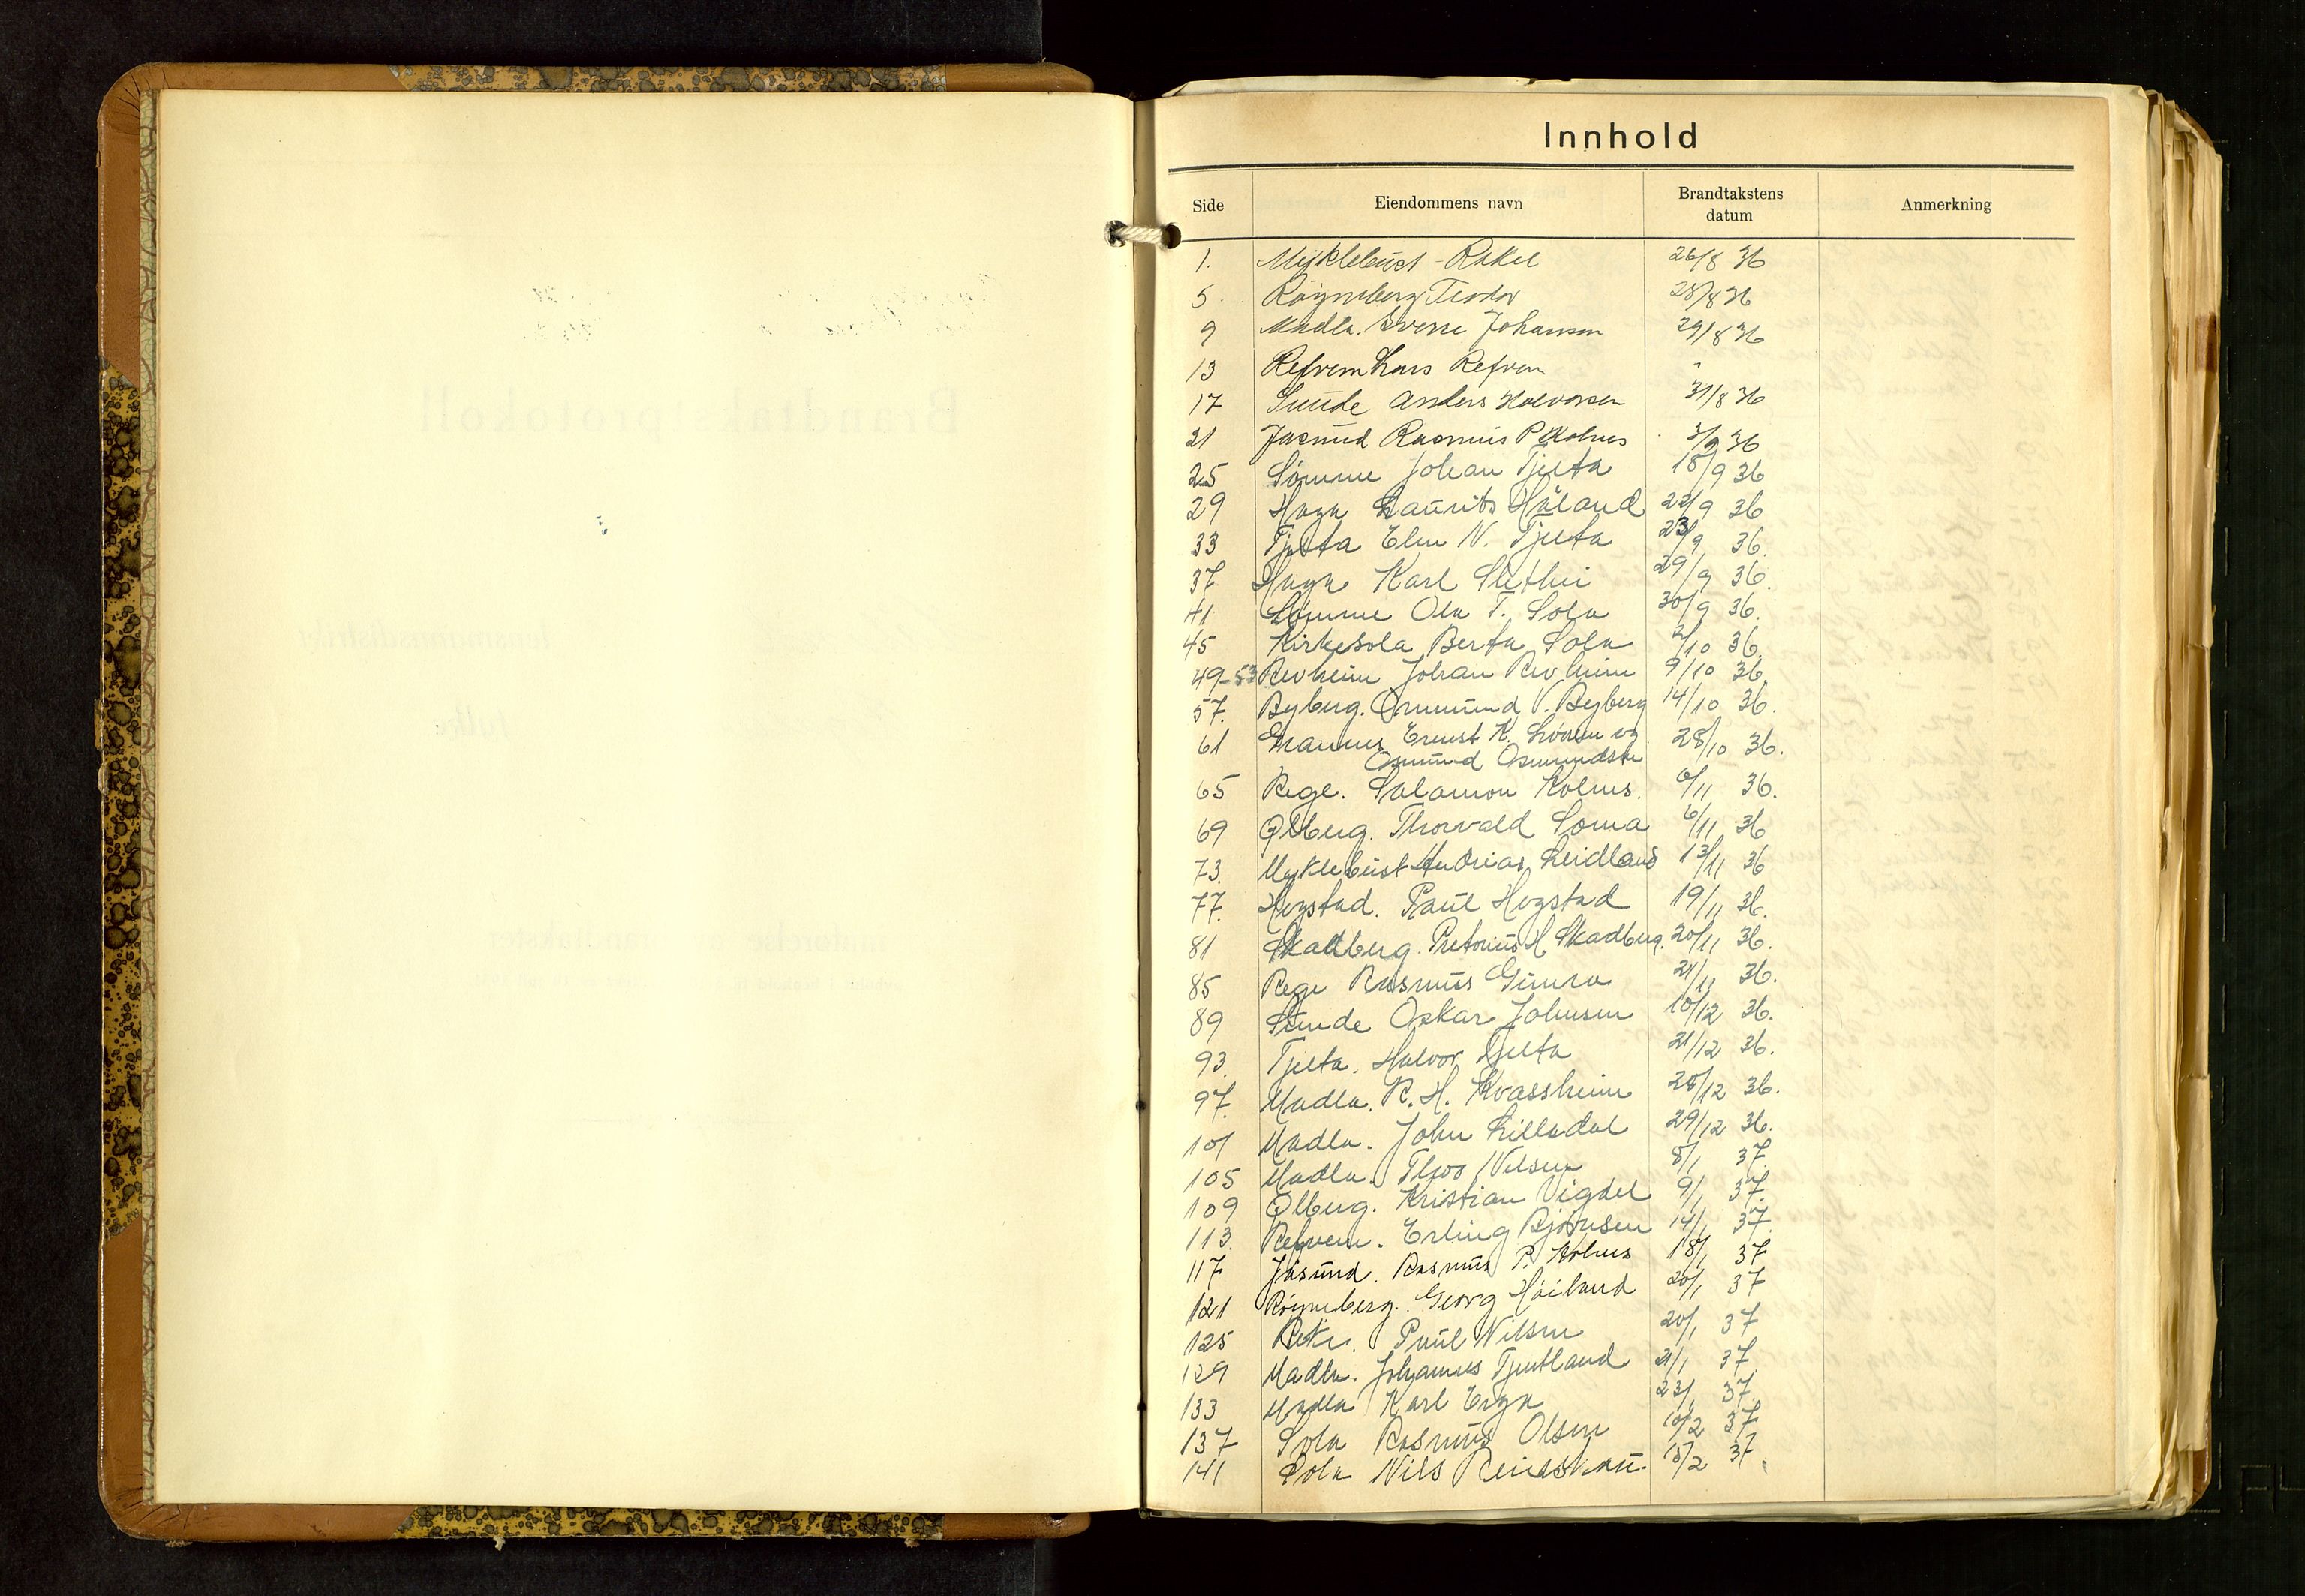 Innhold
Side Eiendommens navn Brandtakstens datum Anmerkning
1. Myklebust - Rakel 26/8 36
5. Røyneberg Teodor 28/8 36
9 Madla. Sverre Johansen 29/8 36
13 Refvem Lars Refvem "
17 Sunde Anders Halvorsen 31/8 36
21 Jåsund Rasmus P. Kolnes 3/9 36
25 Sømme Johan Tjelta 18/9 36
29 Haga Laurits Håland 22/9 36
33 Tjelta Elen N. Tjelta 23/9 36.
37 Haga Karl 29/9 36.
41 Sømme Ola T. Sola 30/9 36.
45 Kirkesola Berta Sola 2/10 36.
49-53 Revheim Johan Revheim 9/10 36.
57. Byberg. Ommund V. Byberg 14/10 36.
61 Grannes Ernst K. og 28/10 36.
Osmund Osmundsen
65 Rege. Salamon Kolnes. 6/11 36.
69 Ølberg. Thorvald Soma 6/11 36
73. Myklebust Andreas Leidland 13/11 36
77. Hogstad. Paul Hogstad 19/11 36.
81 Skadberg. Pretorius H. Skadberg. 20/11 36.
85 Rege Rasmus Gimra 21/11 36.
89 Sunde Oskar Johnsen 10/12 36.
93. Tjelta. Halvor Tjelta 21/12 36.
97. Madla. R. H. Kvassheim 28/12 36.
101 Madla. John Lilledal 29/12 36.
105 Madla. Thor Nilsen 8/1 37.
109 Ølberg. Kristian Vigdel 9/1 37.
113. Refvem. Erling Bjørnsen 14/1 37.
117 Jåsund. Rasmus P. Kolnes 18/1 37
121 Røyneberg. Georg Høiland 20/1 37
125 Paul Nilsen 20/1 37
129 Madla. Johannes Tjentland 21/1 37
133 Madla Karl Erga 23/1 37.
137 Sola Rasmus Olsen 10/2 37
141 Sola Nils 18/2 37.